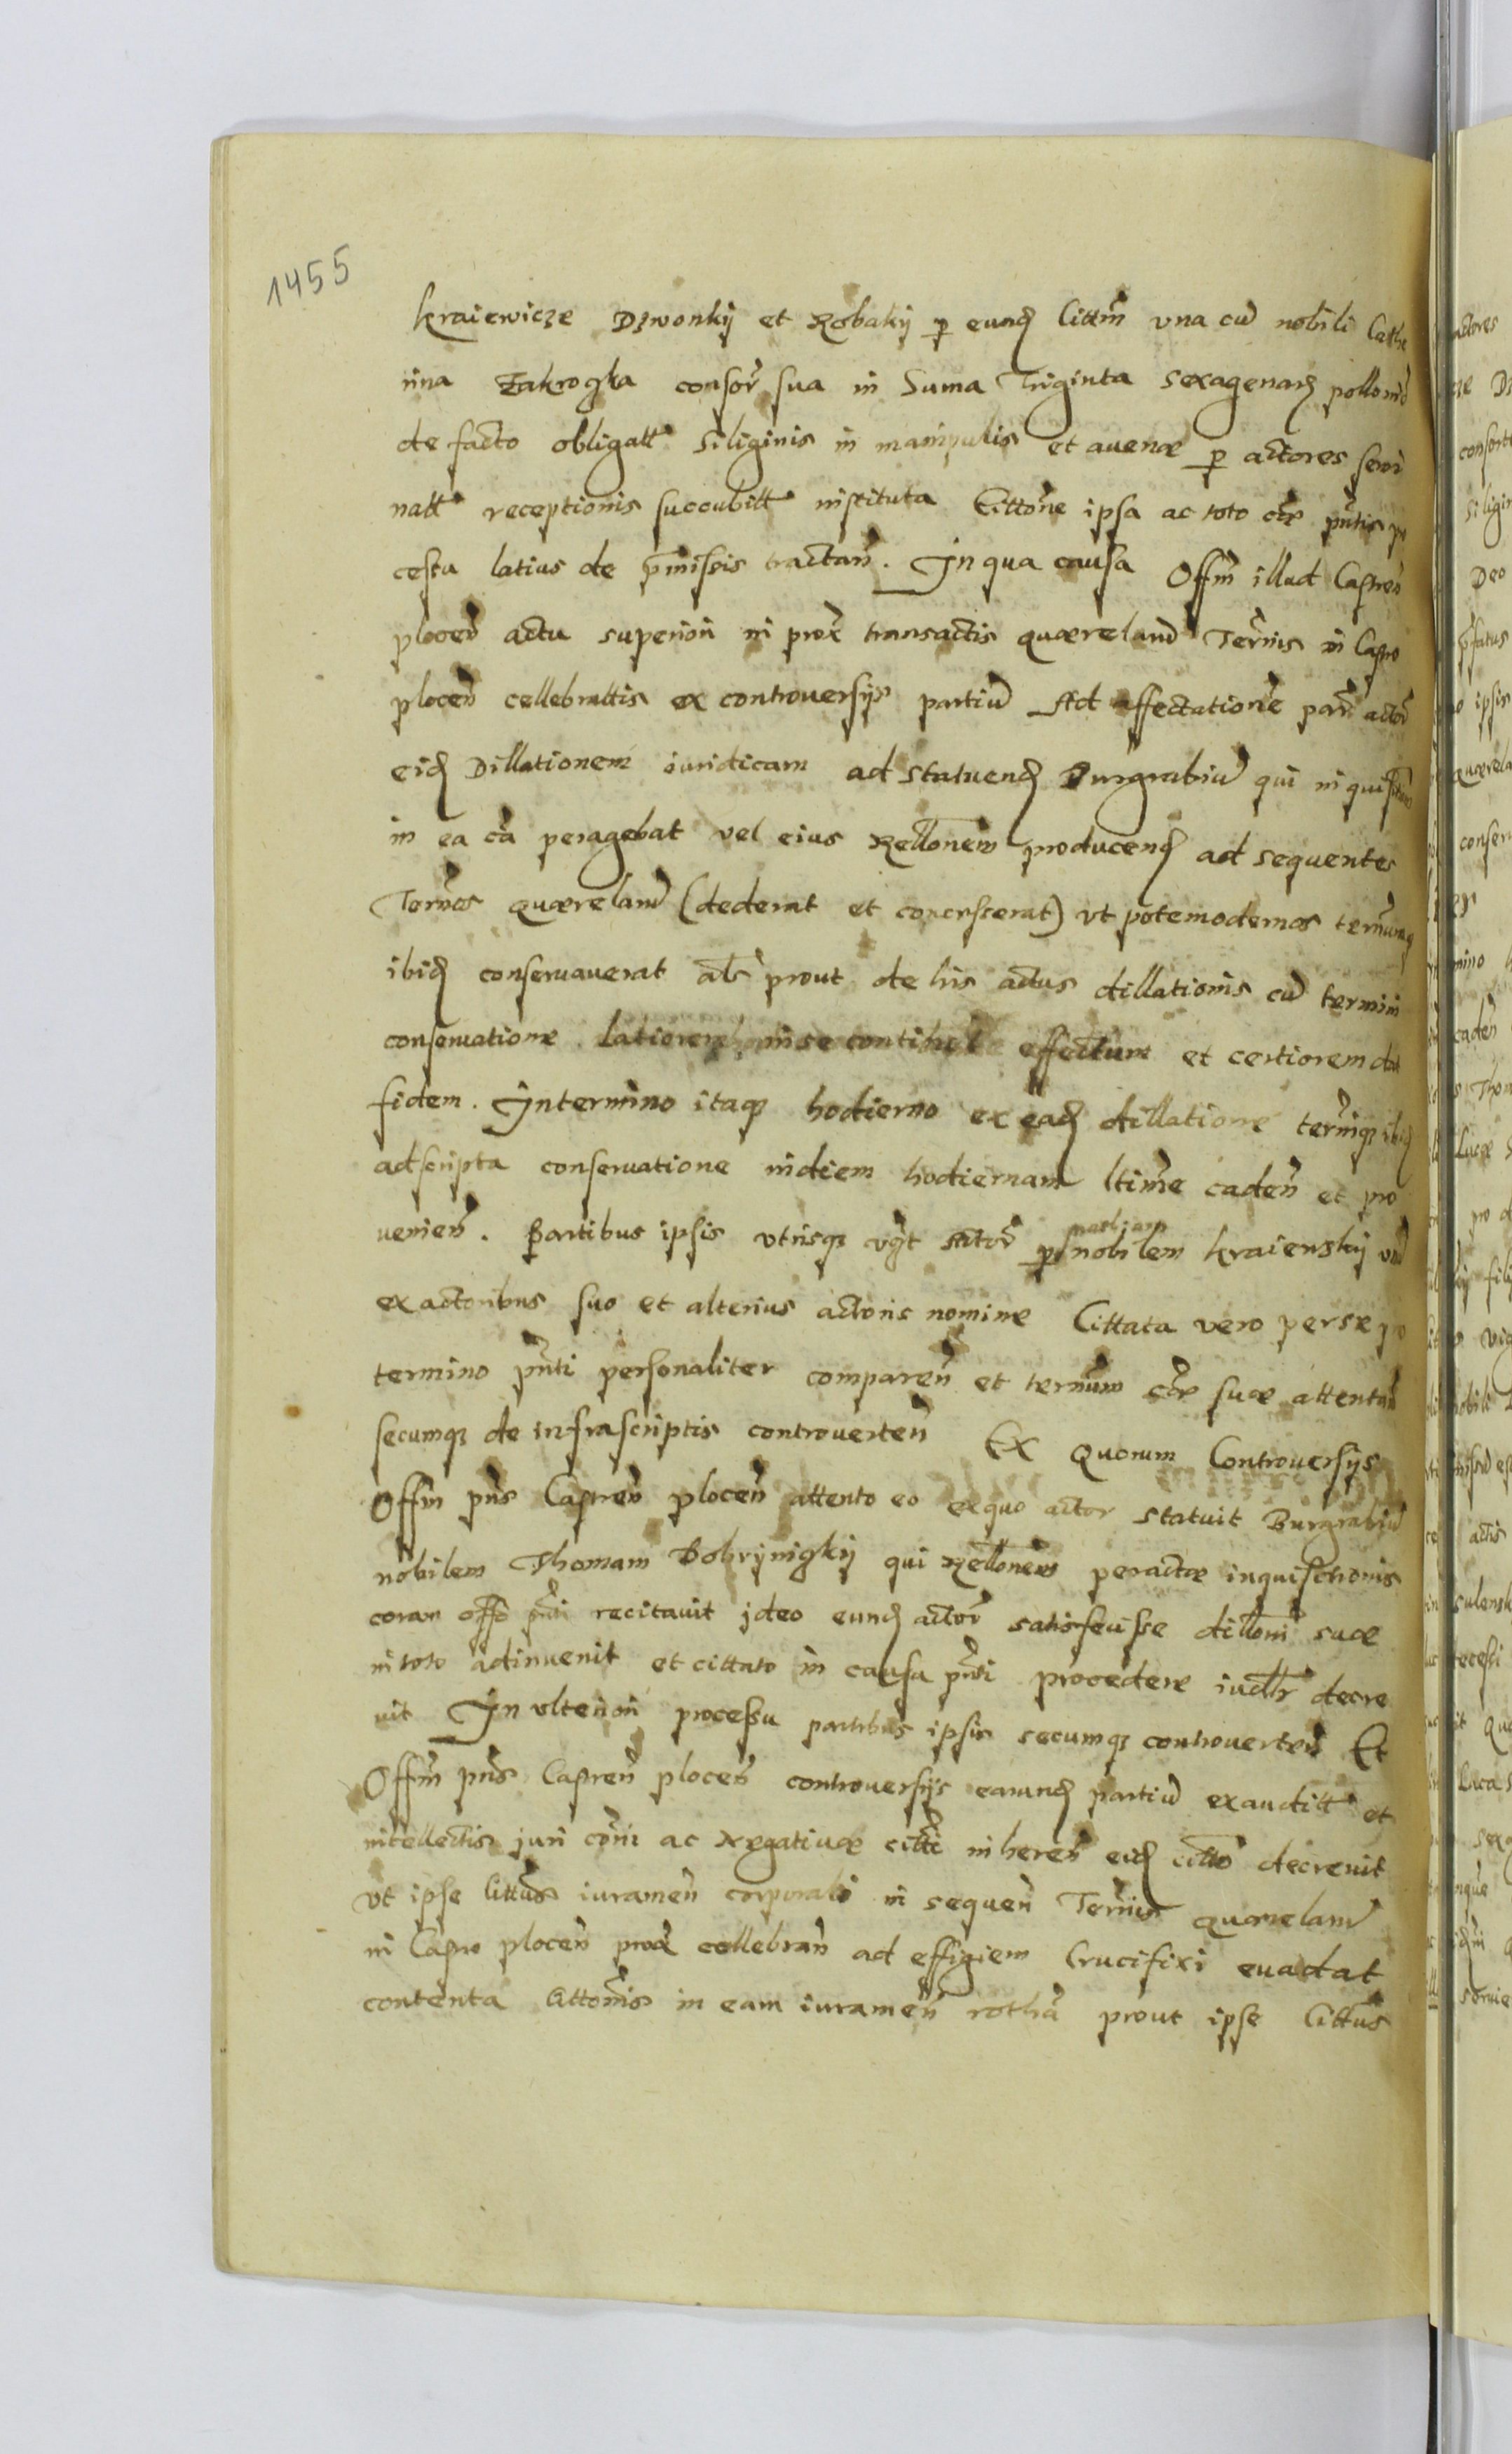 1455
kraiewicze Dzwonky et Robaky p eund Cittm vna cu nobili Cathe
rina Zakrogka consor sua in Suma Triginta sexagenar pollon
de facto obligatt siliginis in manipulis et auenæ p actores semi
natt receptionis succubitt instituta Cittone ipsa ac toto cæ pntis pro
cessu latius de pmissis tractan. In qua causa Offm illud Castren
plocen actu superiori in prox transactis quærelaru Termis in Castro
plocen cellebrattis ex controuersys partiu Ad affectatione par actor
eid Dillationem iuridicam ad statuend Burgrabiu qui inquisition
in ea ca peragebat vel eius Rellonem producend ad sequentes
Termos quærelaru (dederat et concesserat) vt pote modernos terminumq
ibid conseruauerat als prout de his actus dillationis cu termini
conseruatione latiorem in se continet effectum et certiorem dat
fidem. In termino itaq hodierno ex ead dillatione terminiq ibid
adscripta conseruatione in diem hodiernam ltime caden et pro
uenien. Partibus ipsis vtrisq vgt Actor p nobilem kraiensky vnu
ex actoribus suo et alterius actoris nomine Cittata vero per se pro
termino pnti personaliter comparen et terminum cæ suæ attentan
secumq de infrascriptis controuerten Ex Quorum Controuersys
Offm pns Castren plocen attento eo ex quo actor statuit Burgrabiu
nobilem Thomam Bobrynigky qui Rellonem peractæ inquisitionis
coram offo pnti recitauit ideo eund actor satisfecisse dilloni suæ
in toto adinuenit et cittato in causa pnti procedere iudlr decre
uit In vlteriori processu partibus ipsis secumq controuerten Et
Offm pns Castren plocen controuersys earund partiu exauditt et
intellectis juri comi ac Negatiuæ citti inheren eid citto decreuit
vt ipse Cittus iuramen corporali in sequen Termis quærelaru
in Castro plocen prox cellebran ad effigiem Crucifixi euadat
contenta Cittonis in eam iuramen rotha prout ipse Cittus